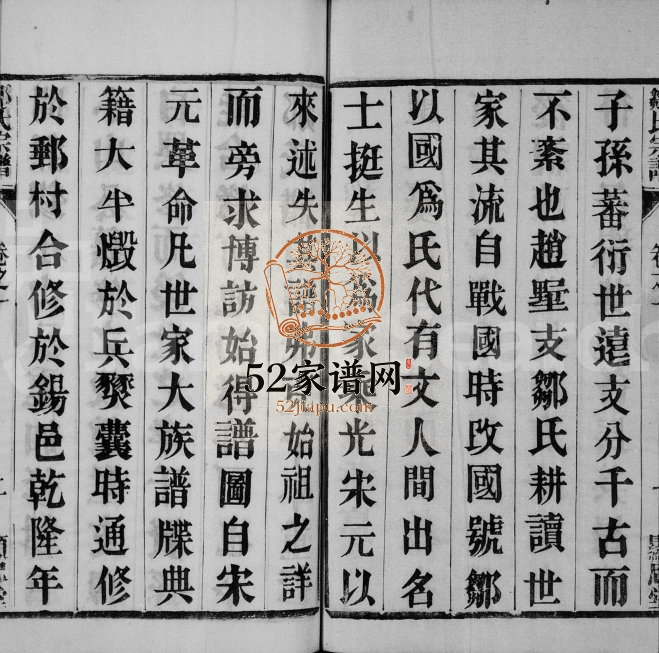 鄒氏宗譜
卷之一
子孫蕃衍世遠支分千古而
不紊也趙墅支鄒氏耕讀世
家其流自戰國時改國號鄒
以國爲氏代有文人間出名
士挺生以爲家光宋元以
來述失其譜始祖之詳
而旁求博訪始得譜圖自宋
元革命凡世家大族譜牒典
籍大半燬於兵燹曩時通修
於郵村合修於錫邑乾隆年
宗譜
卷之一
52家谱网
52jiapu.com